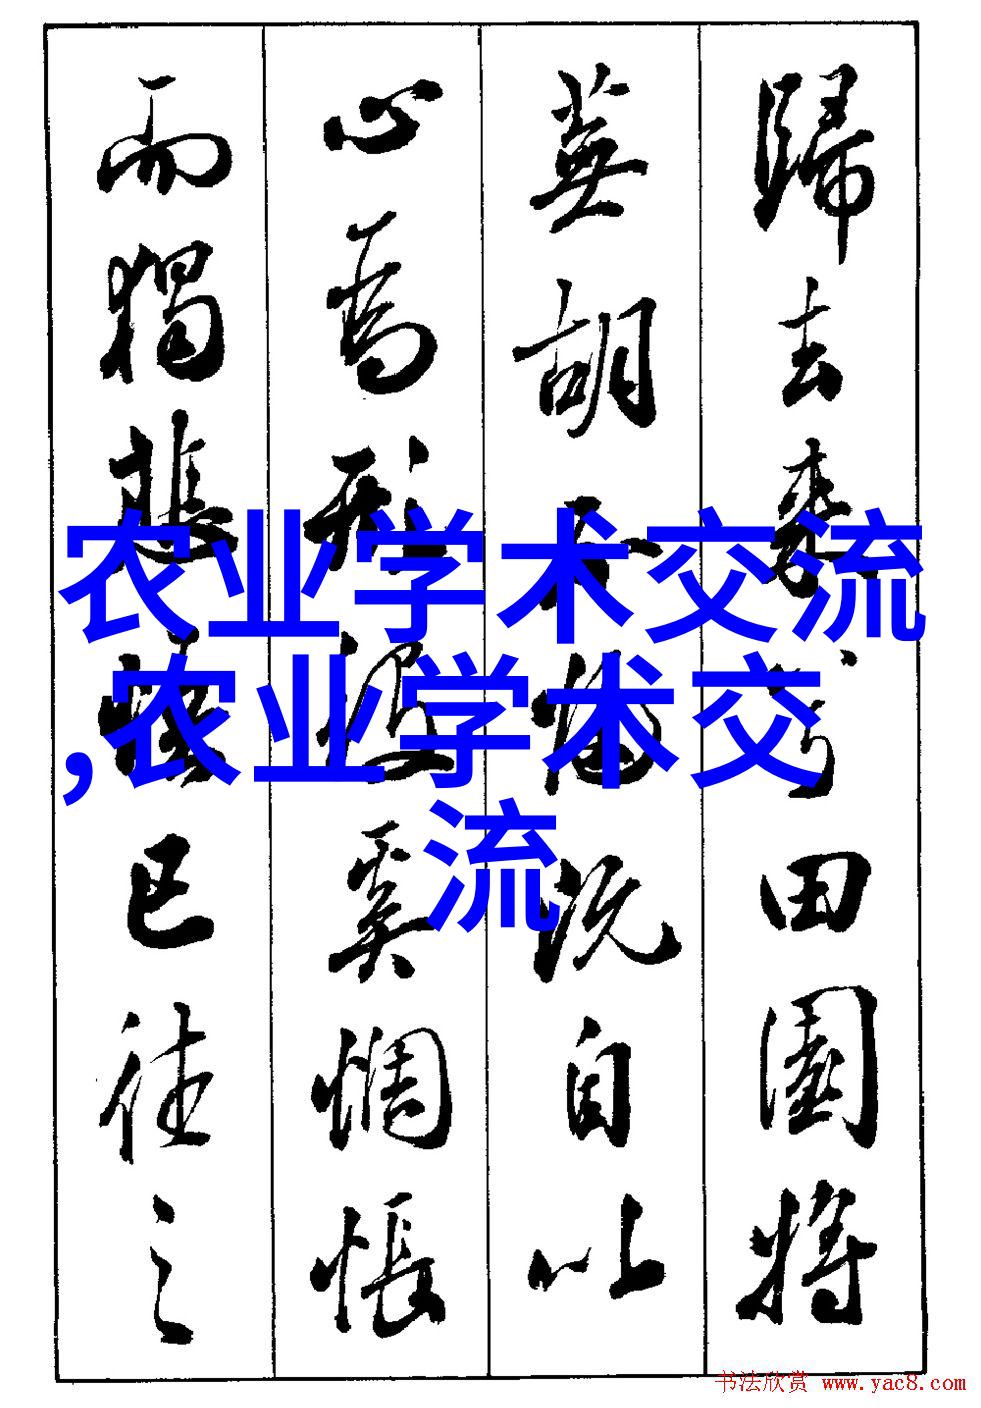 歸去来兮田園將
蕪胡不歸既自以
心為形役奚惆悵
而獨悲悟已往之
农业学术交流
,农业学术交
流
书法欣赏 www.yac8.com